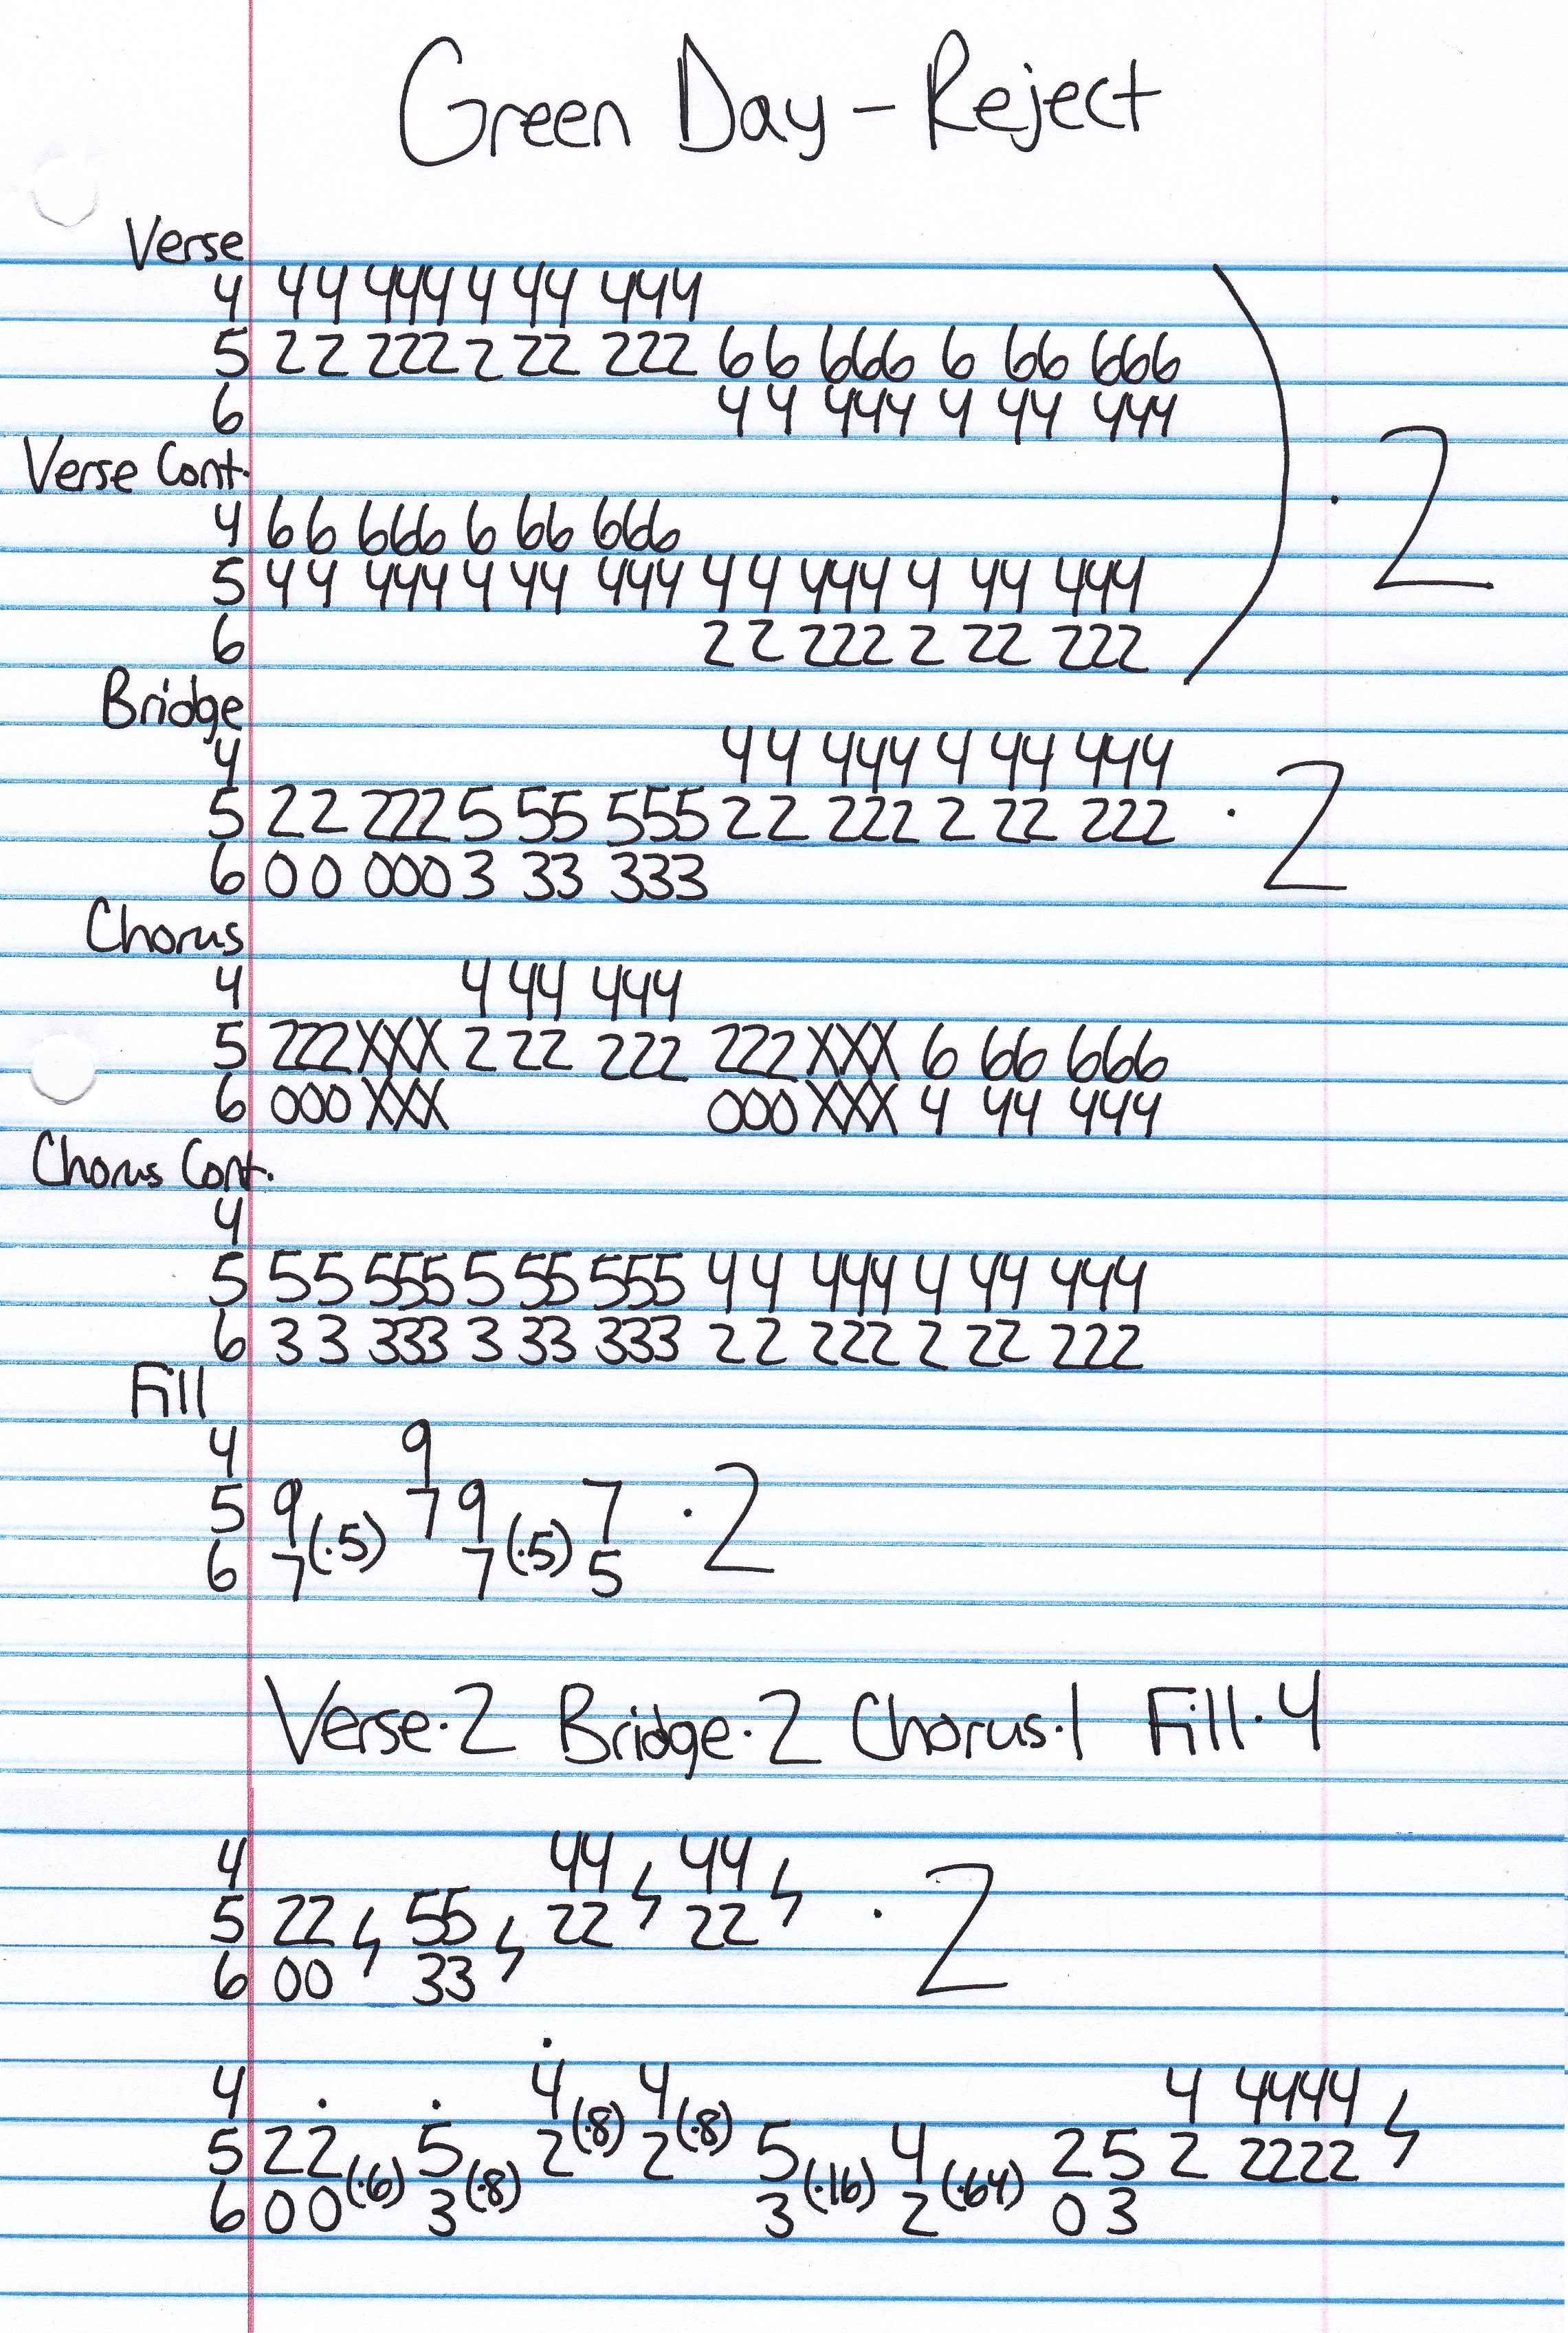 Green Day - Reject
Verse
4 44 444 4 44 444
5 22 222 2 22 222 66 666 6 66 666
6 44 444 4 44 444
Verse Cont.
4 66 666 6 66 666
5 44 444 4 44 444 44 444 4 44 444
6 22 222 2 22 222
· 2
Bridge
4 44 444 4 44 444
5 22 222 5 55 555 22 222 2 22 222 · 2
6 00 000 3 33 333
Chorus
4 4 44 444
5 222 XXX 2 22 222 222 XXX 6 66 666
6 000 XXX 000 XXX 4 44 444
Chorus Cont.
4
5 55 555 5 55 555 44 444 4 44 444
6 33 333 3 33 333 22 222 2 22 222
Fill
4 9
5 9 (·5) 7 9 (·5) 7 · 2
6 7 7 5
Verse·2 Bridge·2 Chorus·1 Fill·4
4 44 44
5 22 55 22 22 · 2
6 00 33
4 4 (·8) 4 (·8) 4 4444
5 22 (·6) 5 (·8) 2 2 5 (·16) 4 (·64) 2 5 2 2222
6 00 3 3 2 0 3